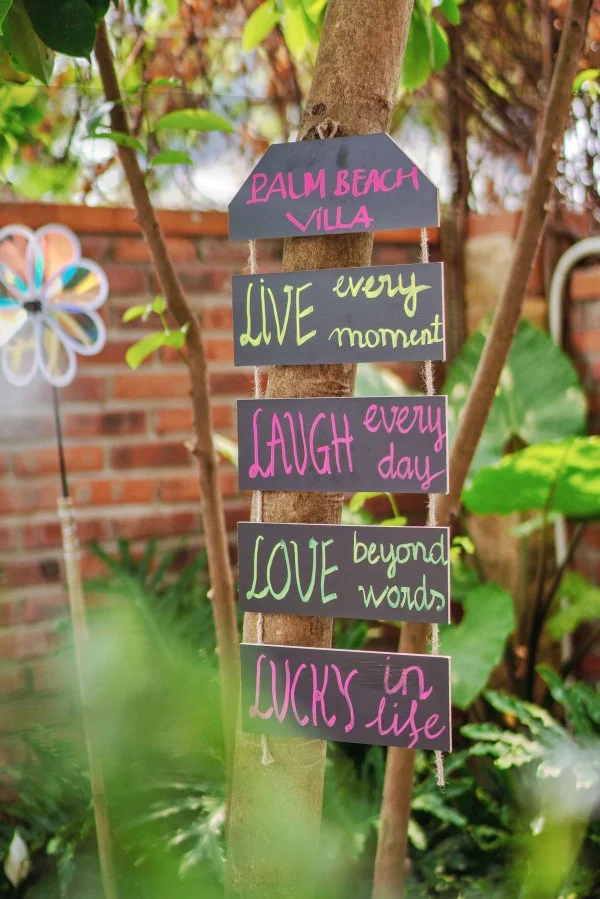 PALM BEACH
VILLA
LIVE every
moment
LAUGH every
day
LOVE beyond
words
LUCKY in
life